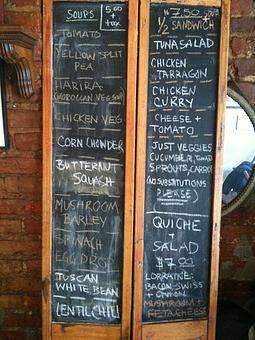 SOUPS
5.00
+
tax
TOMATO
YELLOW SPLIT
PEA
HARIRA
(MOROCCAN VEG SOUP)
CHICKEN VEG
CORN CHOWDER
BUTTERNUT
SQUASH
MUSHROOM
BARLEY
SPINACH
EGG DROP
TUSCAN
WHITE BEAN
LENTIL CHILI
$7.50 SOUP
+
1/2 SANDWICH
TUNA SALAD
CHICKEN
TARRAGON
CHICKEN
CURRY
CHEESE +
TOMATO
JUST VEGGIES
CUCUMBER, TOMATO
SPROUTS, CARROTS
(NO SUBSTITUTIONS
PLEASE)
QUICHE
+
SALAD
$7.00
LORRAINE:
BACON, SWISS
+ ONION
MUSHROOM +
FETA CHEESE